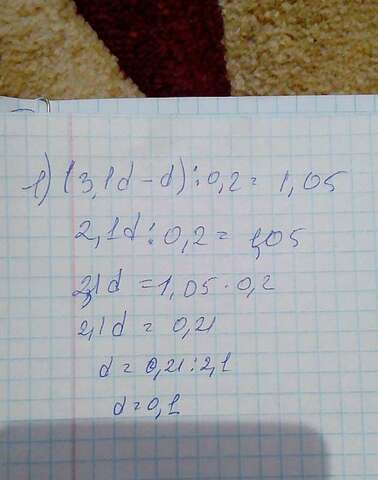 1) (3,1d - d) : 0,2 = 1,05
2,1d : 0,2 = 1,05
2,1d = 1,05 · 0,2
2,1d = 0,21
d = 0,21 : 2,1
d = 0,1